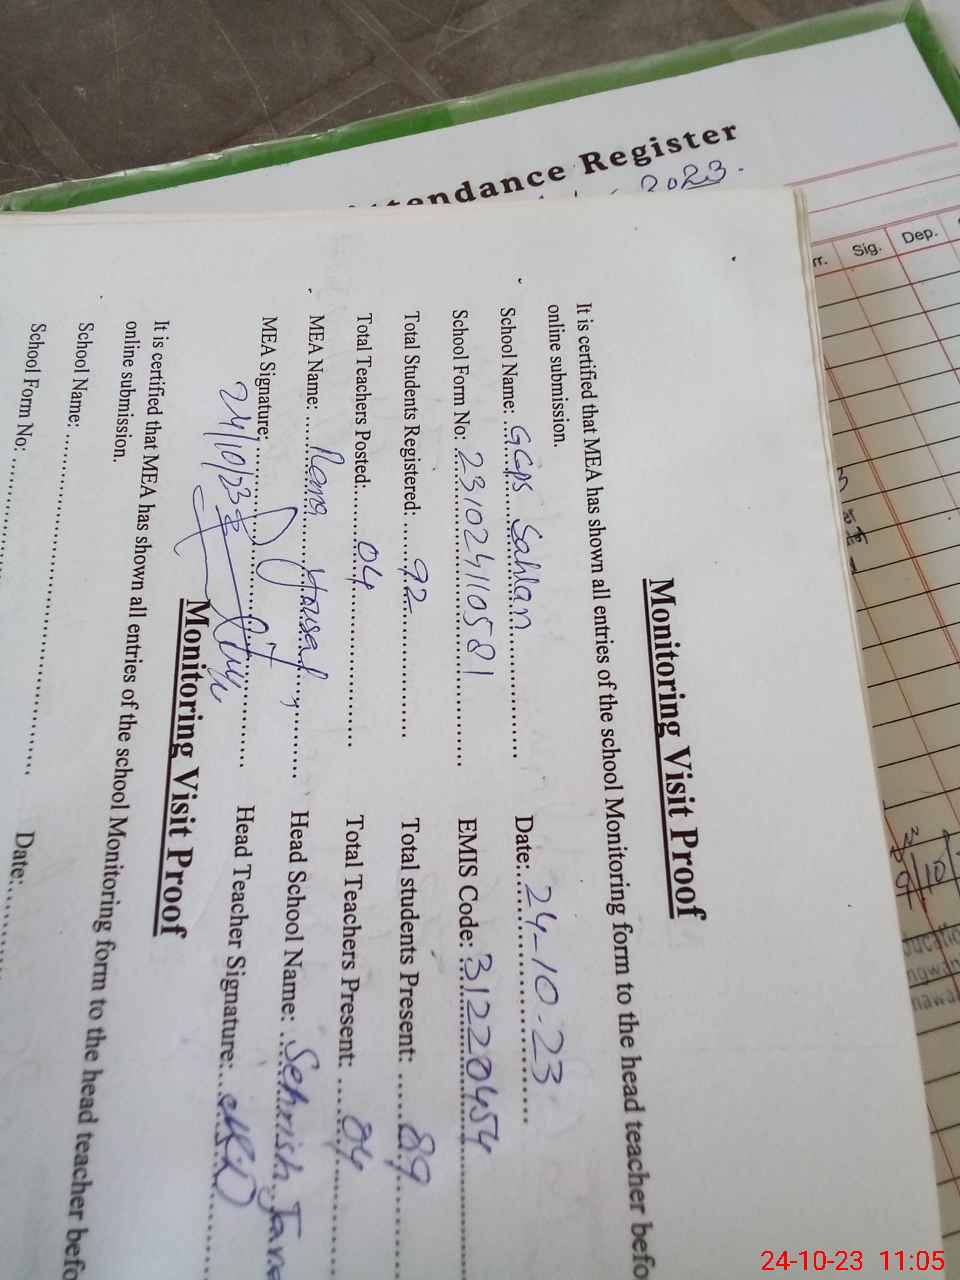 Attendance Register
2023.
rr. Sig. Dep.
Monitoring Visit Proof
It is certified that MEA has shown all entries of the school Monitoring form to the head teacher befo
online submission.
School Name: GGPS Sahlan Date: 24-10-23
School Form No: 231024110581 EMIS Code: 31220454
Total Students Registered: 92 Total students Present: 89
Total Teachers Posted: 04 Total Teachers Present: 04
MEA Name: Head School Name: Sehrish
MEA Signature: Head Teacher Signature:
24/10/23
Monitoring Visit Proof
It is certified that MEA has shown all entries of the school Monitoring form to the head teacher befo
online submission.
School Name:
School Form No: Date:
24-10-23 11:05